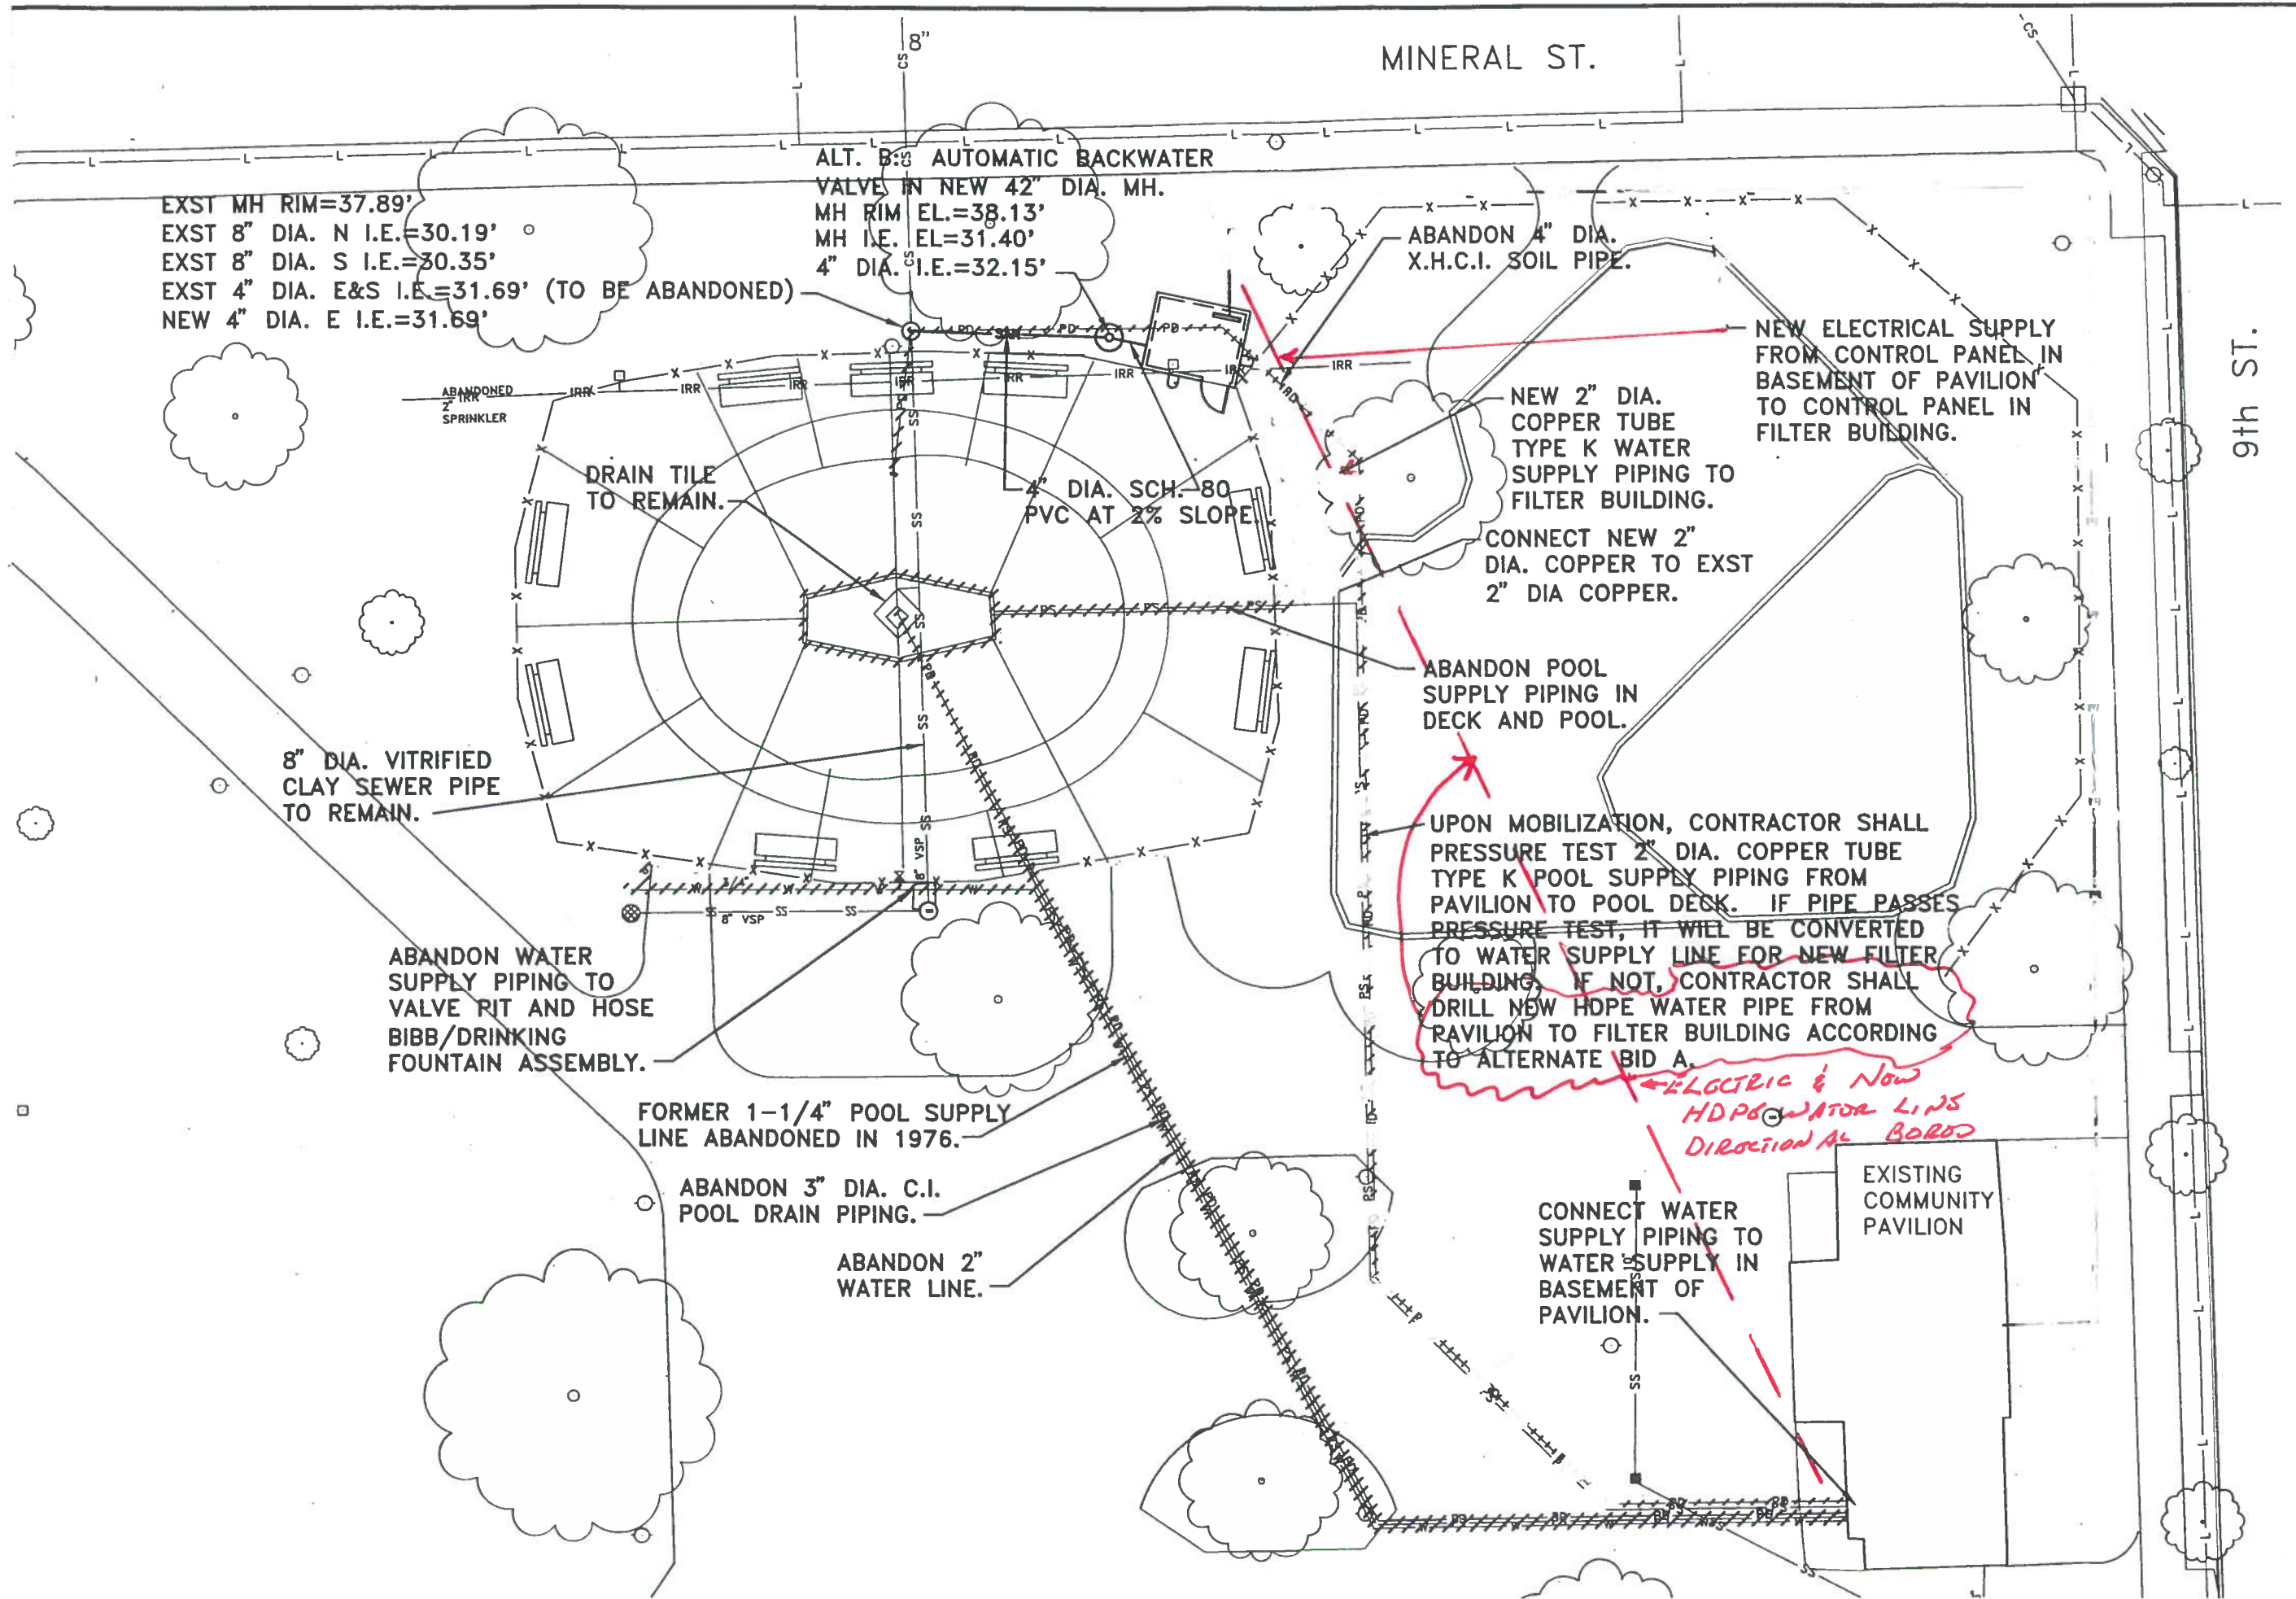 MINERAL ST.
8"
CS
CS
9th ST.
EXST MH RIM=37.89'
EXST 8" DIA. N I.E.=30.19'
EXST 8" DIA. S I.E.=30.35'
EXST 4" DIA. E&S I.E.=31.69' (TO BE ABANDONED)
NEW 4" DIA. E I.E.=31.69'
ALT. B: AUTOMATIC BACKWATER
VALVE IN NEW 42" DIA. MH.
MH RIM EL.=38.13'
MH I.E. EL=31.40'
4" DIA. I.E.=32.15'
ABANDON 4" DIA.
X.H.C.I. SOIL PIPE.
NEW ELECTRICAL SUPPLY
FROM CONTROL PANEL IN
BASEMENT OF PAVILION
TO CONTROL PANEL IN
FILTER BUILDING.
ABANDONED
IRR
2"
SPRINKLER
IRR
IRR
IRR
IRR
IRR
IRR
IRR
IRR
NEW 2" DIA.
COPPER TUBE
TYPE K WATER
SUPPLY PIPING TO
FILTER BUILDING.
DRAIN TILE
TO REMAIN.
4" DIA. SCH. 80
PVC AT 2% SLOPE.
CONNECT NEW 2"
DIA. COPPER TO EXST
2" DIA COPPER.
ABANDON POOL
SUPPLY PIPING IN
DECK AND POOL.
8" DIA. VITRIFIED
CLAY SEWER PIPE
TO REMAIN.
UPON MOBILIZATION, CONTRACTOR SHALL
PRESSURE TEST 2" DIA. COPPER TUBE
TYPE K POOL SUPPLY PIPING FROM
PAVILION TO POOL DECK. IF PIPE PASSES
PRESSURE TEST, IT WILL BE CONVERTED
TO WATER SUPPLY LINE FOR NEW FILTER
BUILDING. IF NOT, CONTRACTOR SHALL
DRILL NEW HDPE WATER PIPE FROM
PAVILION TO FILTER BUILDING ACCORDING
TO ALTERNATE BID A.
3/4"
8" VSP
SS
SS
SS
8" VSP
SS
ABANDON WATER
SUPPLY PIPING TO
VALVE PIT AND HOSE
BIBB/DRINKING
FOUNTAIN ASSEMBLY.
ELECTRIC & NEW
HDPE WATER LINE
DIRECTIONAL BORED
FORMER 1-1/4" POOL SUPPLY
LINE ABANDONED IN 1976.
ABANDON 3" DIA. C.I.
POOL DRAIN PIPING.
ABANDON 2"
WATER LINE.
EXISTING
COMMUNITY
PAVILION
CONNECT WATER
SUPPLY PIPING TO
WATER SUPPLY IN
BASEMENT OF
PAVILION.
SS
SS